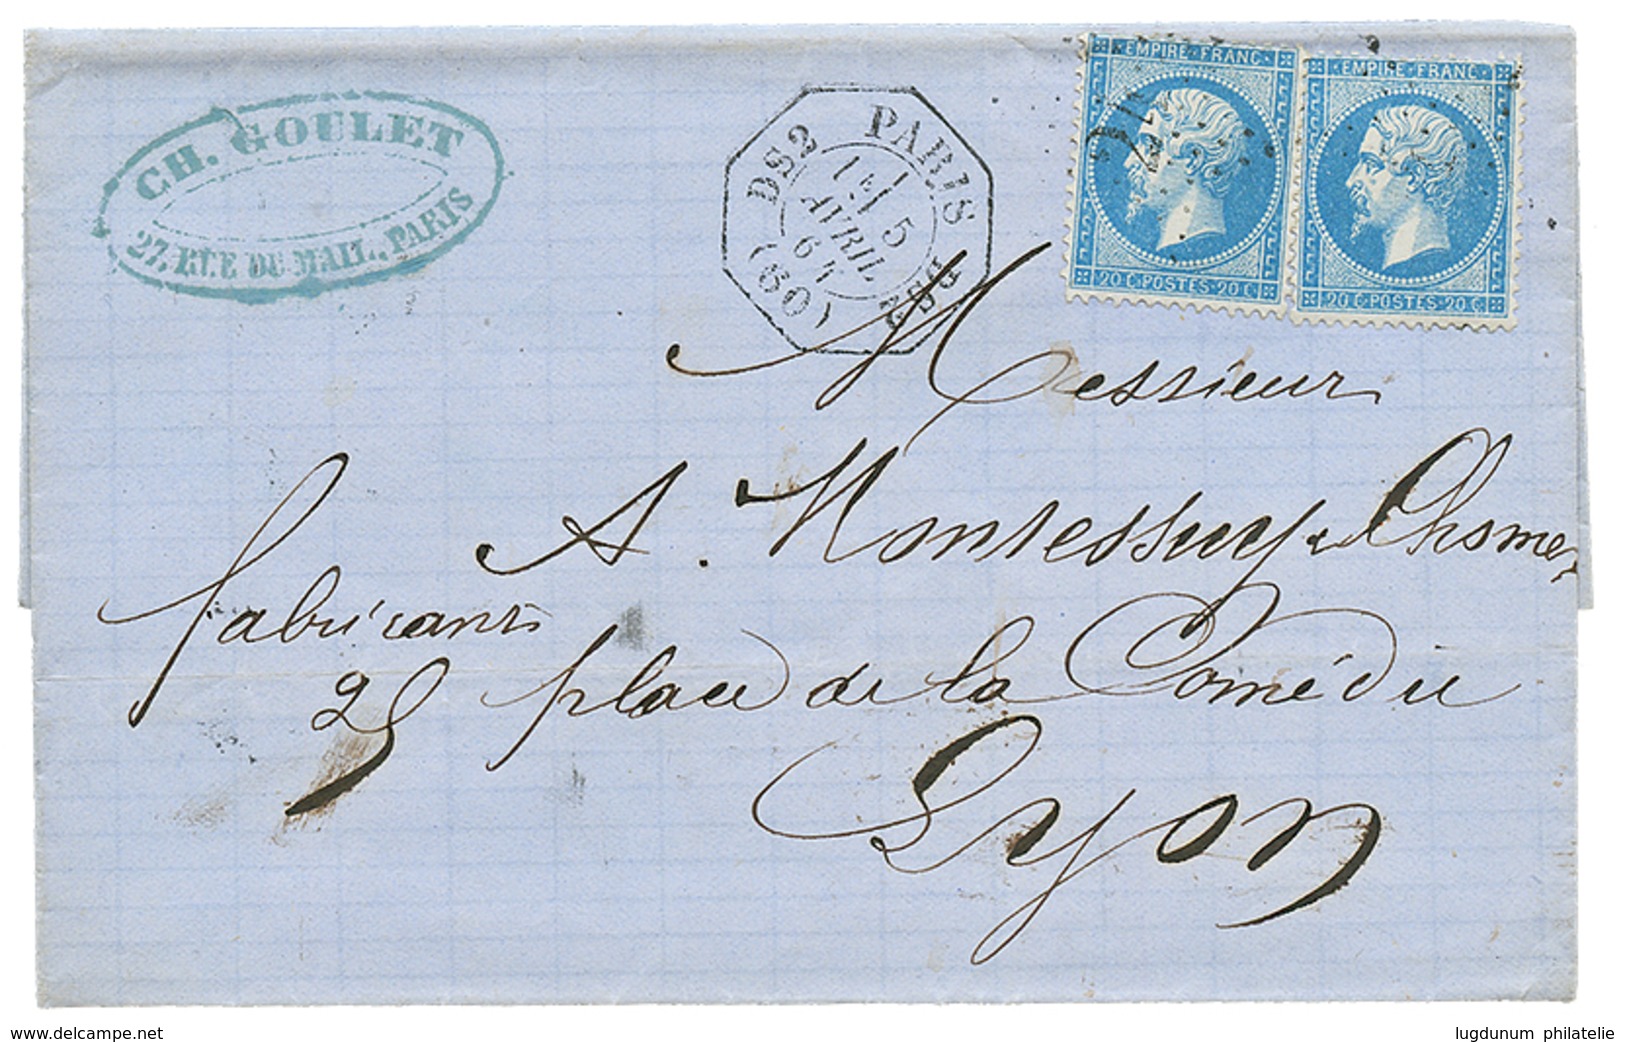 CH. GOULET
27, RUE DU MAIL, PARIS
DS2 PARIS DS2
1E/
5
AVRIL
64
(60)
EMPIRE·FRANC·
20 C·POSTES·20 C·
EMPIRE·FRANC·
20 C·POSTES·20 C·
Messieur
A. Montessuy & Chomer
fabricants
25 place de la Comédie
Lyon
www.delcampe.net
lugdunum philatelie